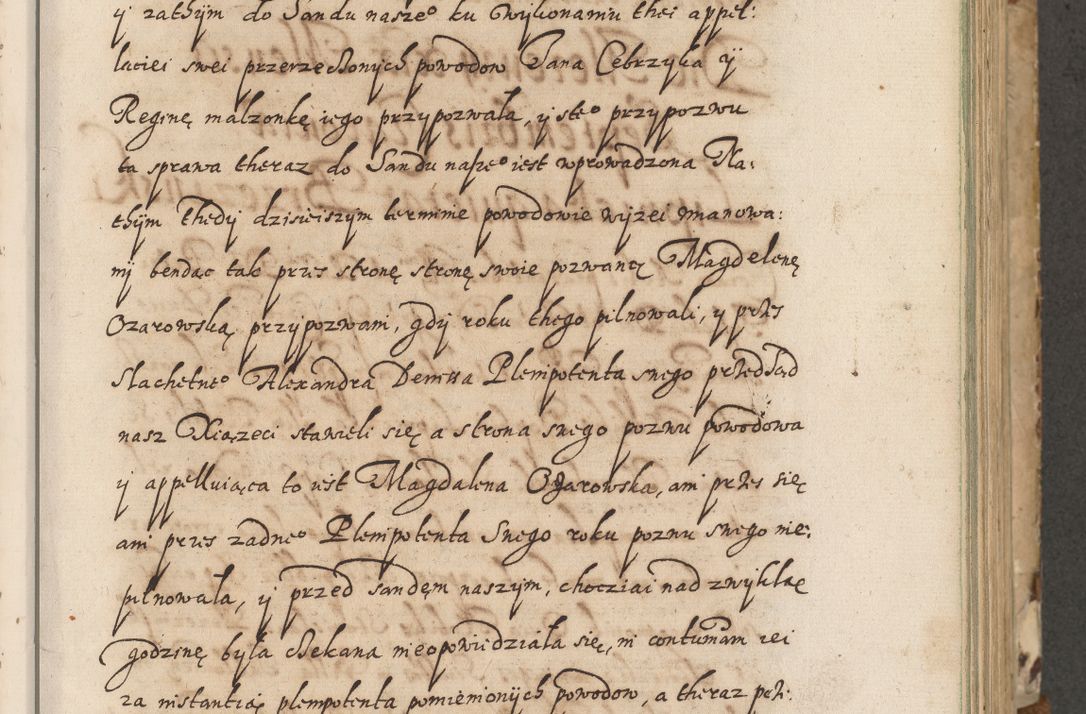 ÿ zathÿm do Sandu naszeo ku wÿkonaniu thei appel:
laciei swei przerzeczonÿch powodow Jana Cebrzyka ÿ
Reginę malzonkę iego przypozwała, ÿ steo przypozwu
ta sprawa theraz do Sandu naszeo iest wprowadzona Na:
thÿm thedÿ dzisieiszym terminie powodowie wyzei mianowa:
nÿ bendąc tak przes stronę stronę swoie pozwaną Magdelenę
Ozarowską przypozwani, gdÿ roku thego pilnowali, y przes
slachetneo Alexandra Demssa Plenipotenta swego przed Sąd
nasz Xiązeci stawieli się a strona swego pozwu powodowa
ÿ appelluiąca to iest Magdalena Ozarowska, ani przes się
ani przes zadneo Plenipotenta Swego roku pozwu swego nie:
pilnowała, ÿ przed sandem naszym, chocziai nad zwykłą
godzinę była czekana nieopowiedziała się, in contumam iei
za instantią plenipotenta pomienionÿch powodow, a theraz prze: